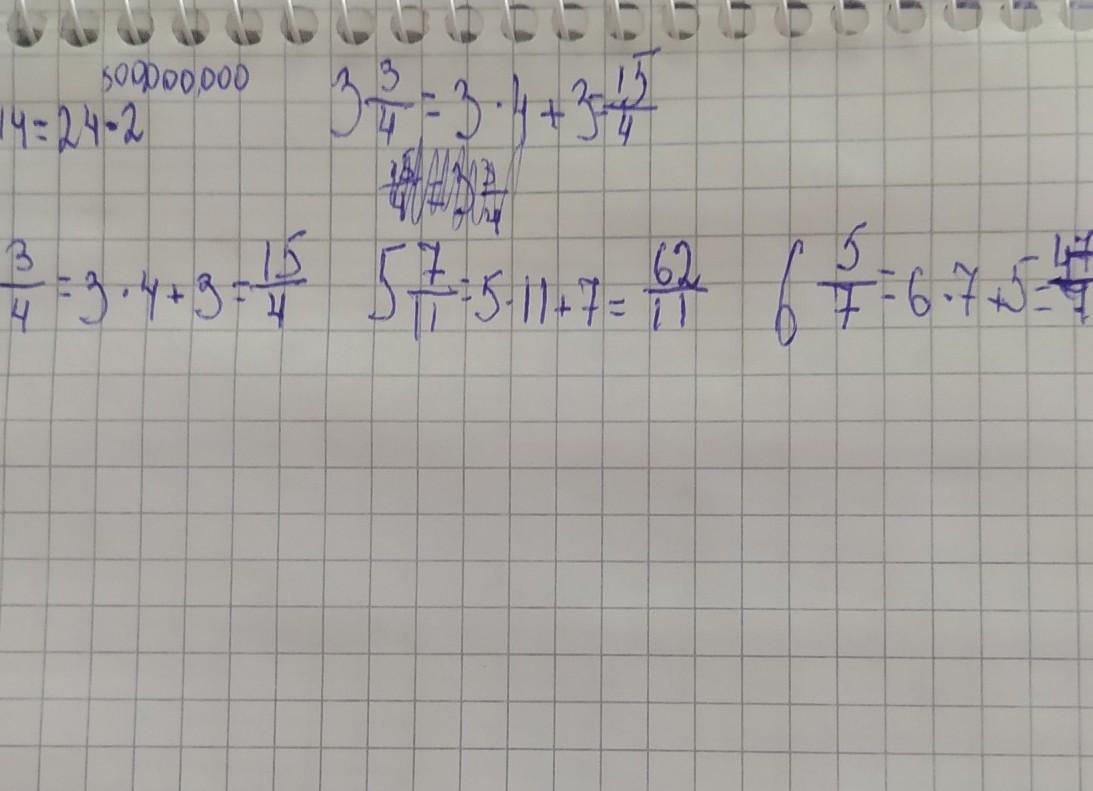 500,000,000
14=24-2
3 3/4 = 3·4+3=15/4
3/4 = 3·4+3=15/4 5 7/11 = 5·11+7=62/11 6 5/7 = 6·7+5=47/7